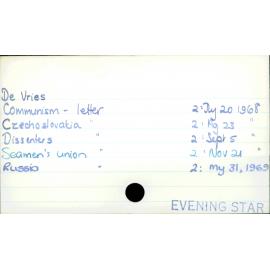 De Vries
Communism - letter 2: Jy 20 1968
Czechoslovakia " 2: Ag 23 "
Dissenters " 2: Sept 5 "
Seamen's union " 2: Nov 21 "
Russia " 2: my 31, 1969
EVENING STAR